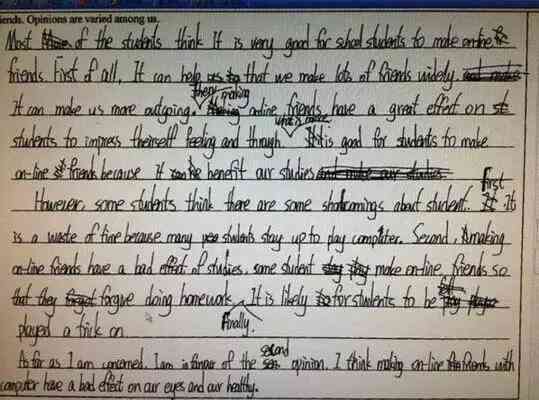 iends. Opinions are varied among us.
Most of the students think It is very good for school students to make on-line
friends. First of all, It can help us that we make lots of friends widely.
It can make us more outgoing. then making on-line friends have a great effect on
students to impress theirself feeling and through what's more It is good for students to make
on-line friends because It can be benefit our studies
However, some students think there are some shortcomings about student. First It
is a waste of time because many students stay up to play computer. Second, making
on-line friends have a bad effect of studies, some student make on-line friends so
that they forgive doing homework. Finally. It is likely for students to be
played a trick on
As far as I am concerned. I am in favor of the second opinion. I think making on-line friends with
computer have a bad effect on our eyes and our healthy.